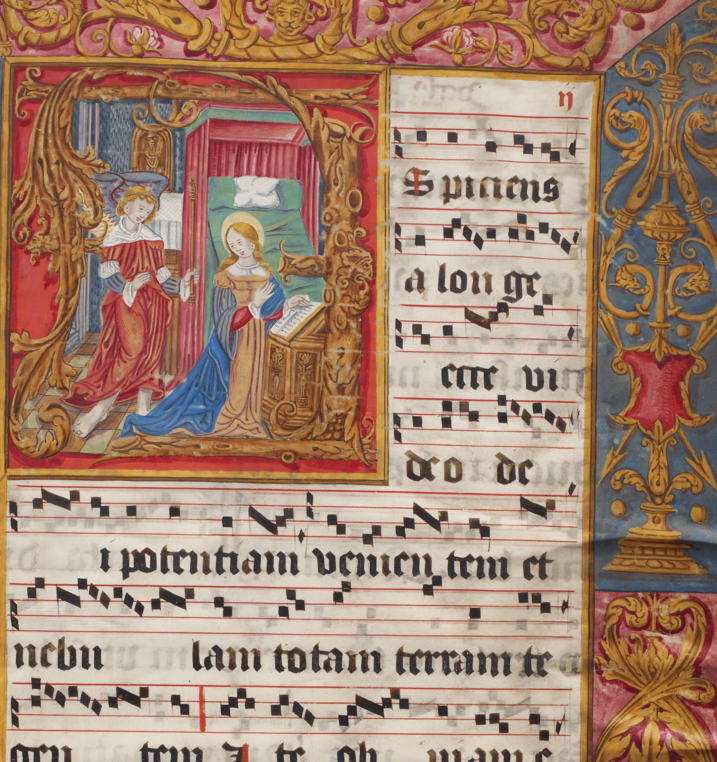 ij
Spiciens
a lon ge
ecce vi
deo de
i potentiam venien tem et
nebu lam totam terram te
gen tem I te ob viam e